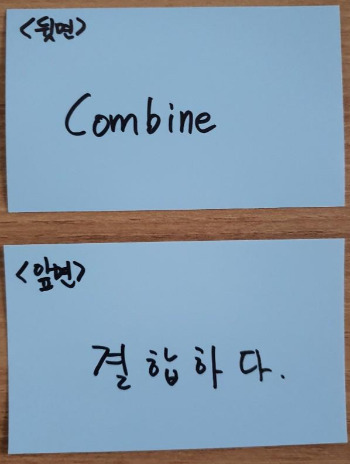 <뒷면>
Combine
<앞면>
결합하다.